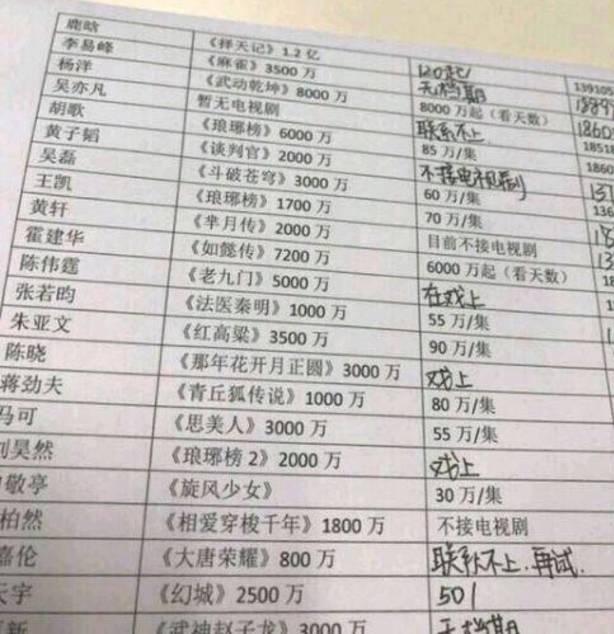 鹿晗 《择天记》1.2 亿 120起 139105
李易峰 《麻雀》3500 万 无档期
杨洋 《武动乾坤》8000 万 8000 万起（看天数） 1860
吴亦凡 暂无电视剧 联系不上 18518
胡歌 《琅琊榜》6000 万 85 万/集 1860
黄子韬 《谈判官》2000 万 不接电视剧 131
吴磊 《斗破苍穹》3000 万 60 万/集 136
王凯 《琅琊榜》1700 万 70 万/集
黄轩 《芈月传》2000 万 目前不接电视剧
霍建华 《如懿传》7200 万 6000 万起（看天数）
陈伟霆 《老九门》5000 万 在戏上
张若昀 《法医秦明》1000 万 55 万/集
朱亚文 《红高粱》3500 万 90 万/集
陈晓 《那年花开月正圆》3000 万 戏上
蒋劲夫 《青丘狐传说》1000 万 80 万/集
马可 《思美人》3000 万 55 万/集
刘昊然 《琅琊榜 2》2000 万 戏上
敬亭 《旋风少女》 30 万/集
柏然 《相爱穿梭千年》1800 万 不接电视剧
嘉伦 《大唐荣耀》800 万 联系不上.再试.
天宇 《幻城》2500 万 501
新 《武神赵子龙》3000 万 无档期